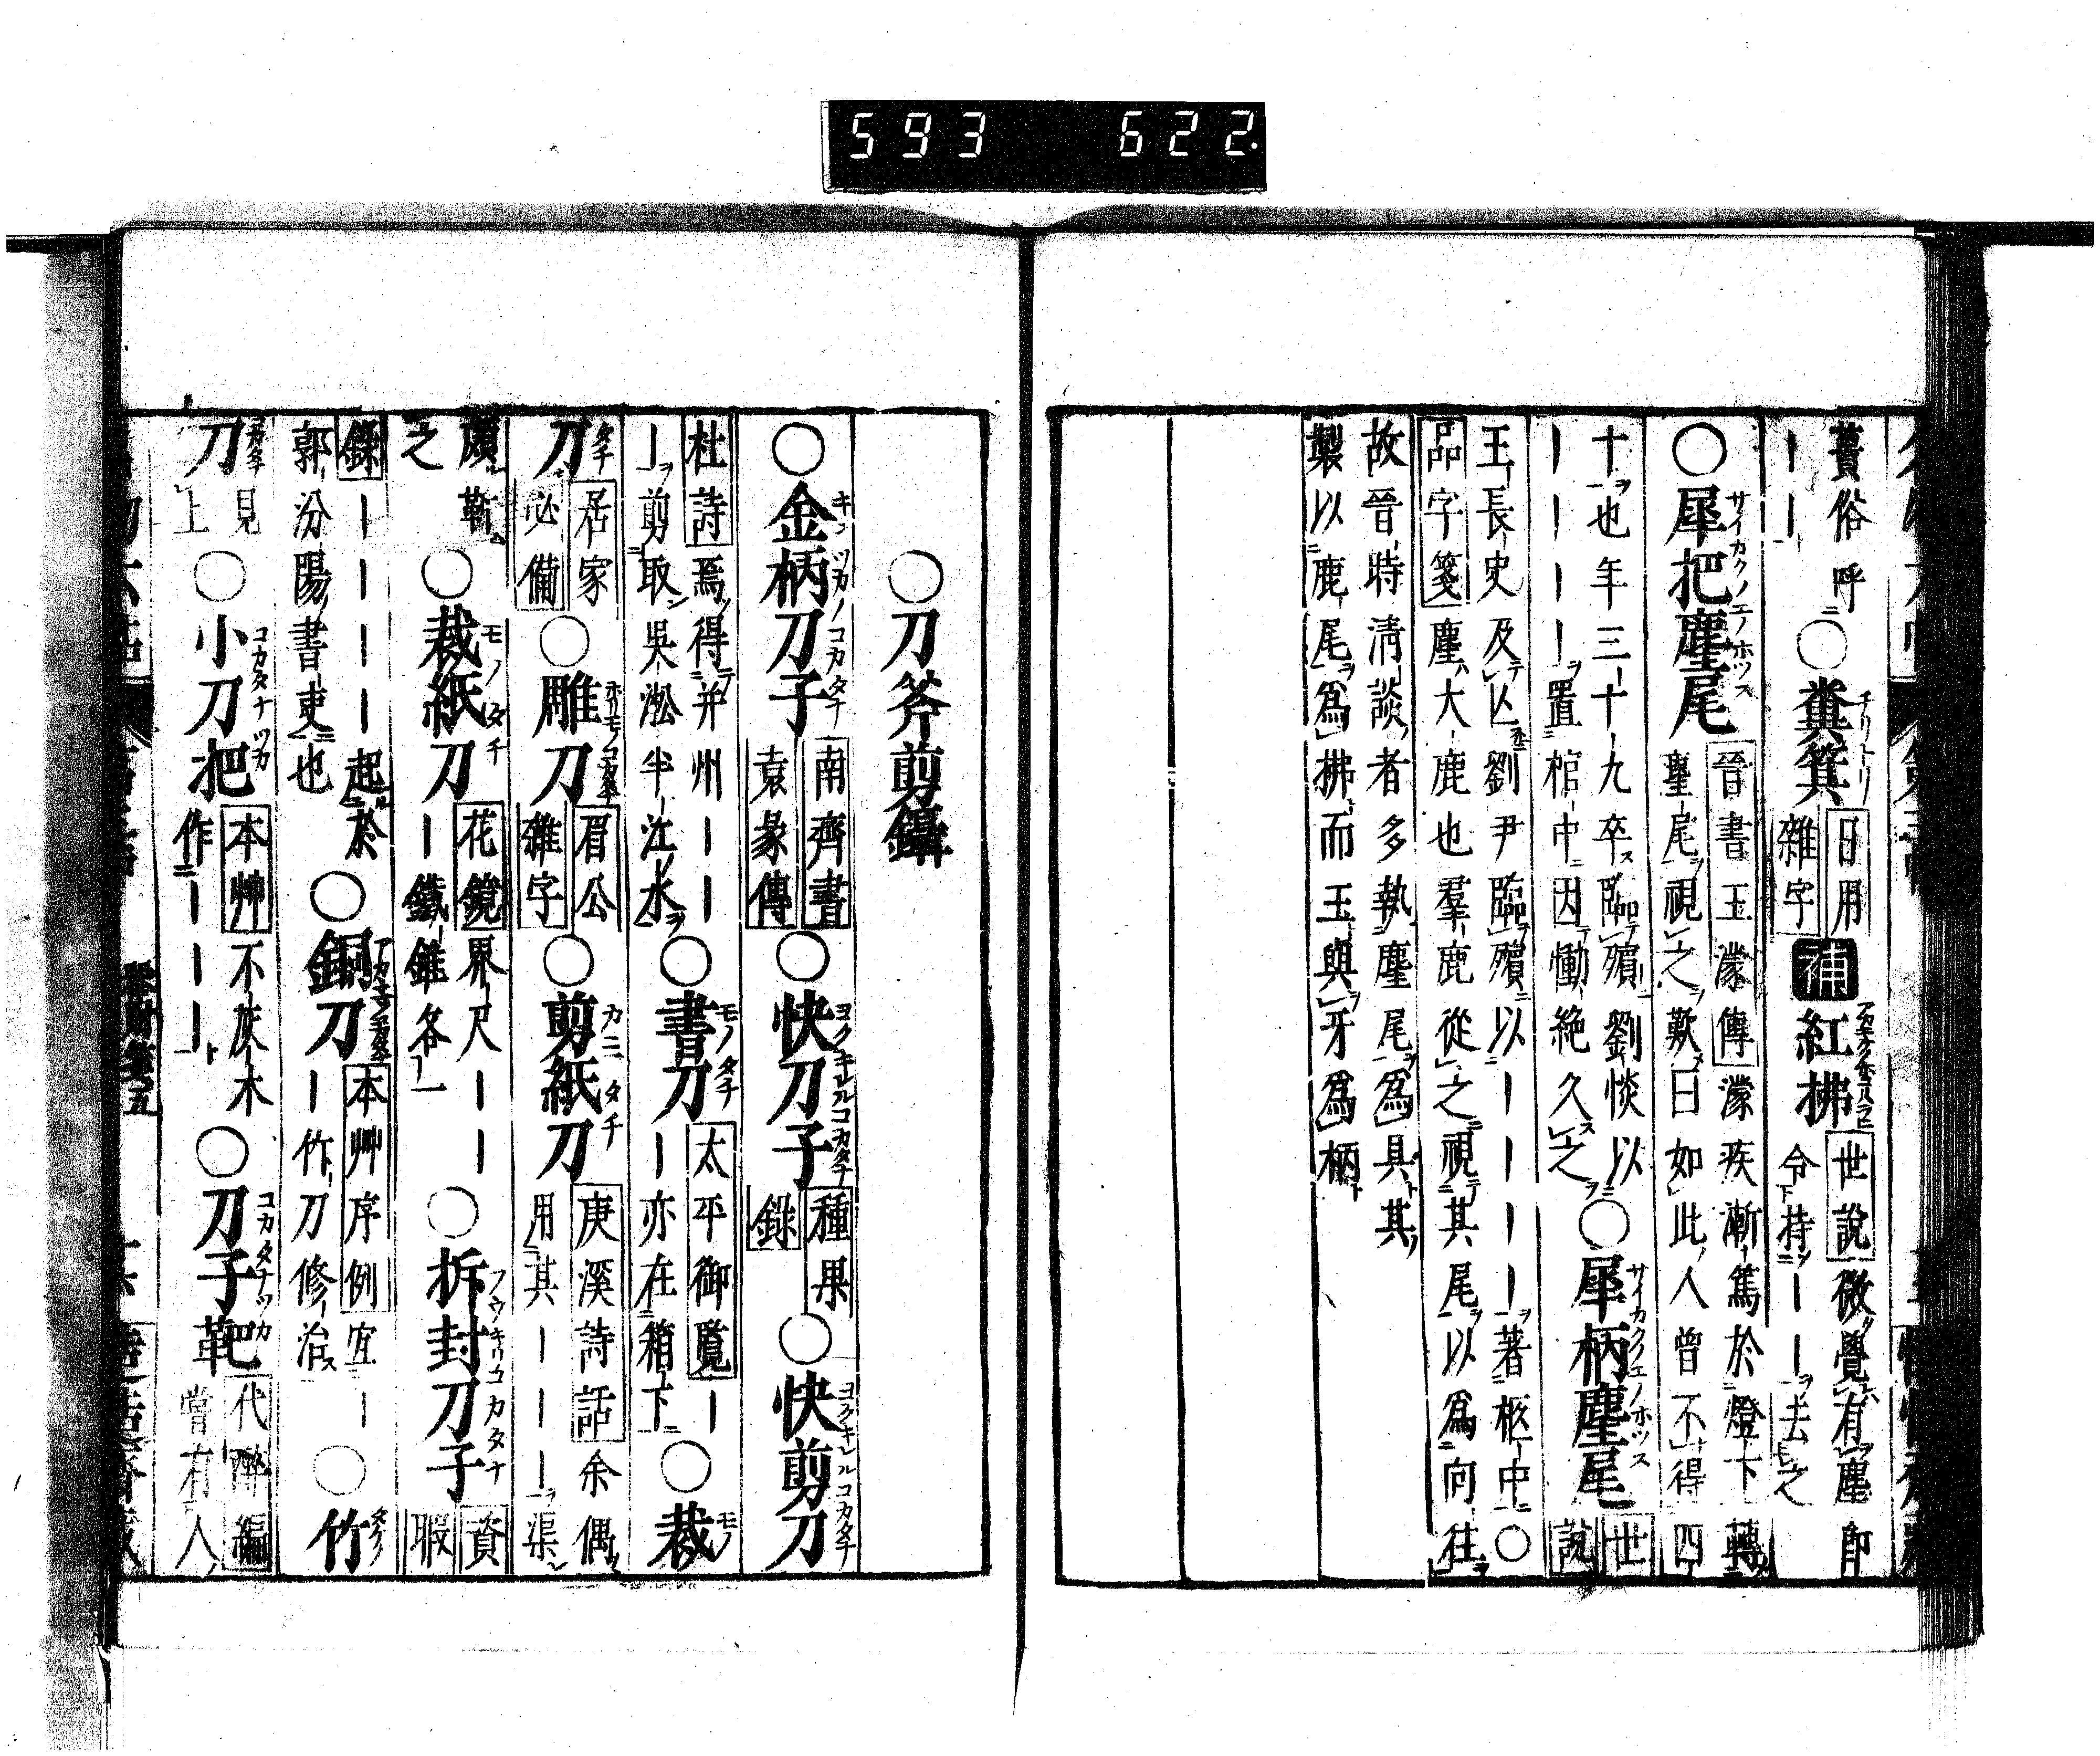 593 622
蕢俗呼
ーー
○糞箕 日用
雜字
補 紅拂 世說 微覺有塵卽
令持ーー去之
○犀把麈尾 晉書王濛傳 濛疾漸篤於燈下轉
麈尾視之歎曰如此人曾不得四
十也年三十九卒臨殯劉惔以
ーーーー置棺中因慟絶久之
○犀柄麈尾 世
說
王長史及亾劉尹臨殯以ーーーー著柩中○
品字箋 麈大鹿也羣鹿從之視其尾以爲向往
故晉時淸談者多執麈尾爲具其
製以鹿尾爲拂而玉與牙爲柄
○刀斧剪鑷
○金柄刀子 南齊書
袁彖傳
○快刀子 種果
錄
○快剪刀
杜詩 焉得并州ーー
ー剪取吳淞半江水
○書刀 太平御覽 ー
ー亦在箱下
○裁
刀 居家
必備
○雕刀 眉公
雜字
○剪紙刀 庚溪詩話 余偶
用其ーーー渠
靳
之
○裁紙刀 花鏡 界尺ーー
ー鐵錐各一
○拆封刀子 資
暇
錄 ーーーー起於
郭汾陽書吏也
○銅刀 本艸序例 宜ー
ー竹刀修治
○竹
刀 見
上
○小刀把 本艸 不灰木
作ーーー
○刀子靶 代醉編
嘗有人